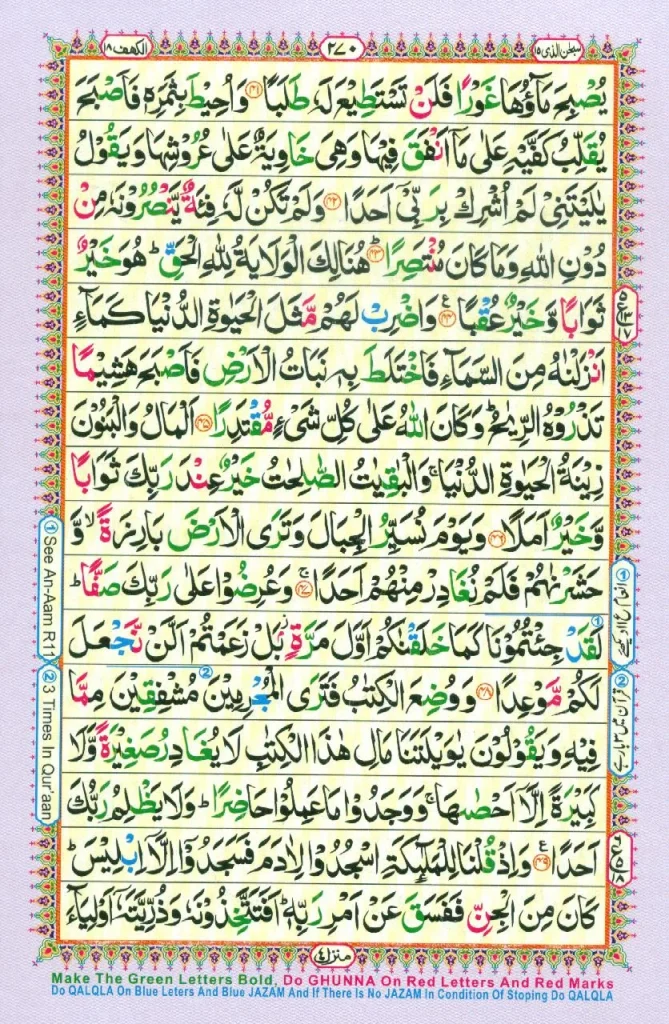 سبحٰن الذی ۱۵
۲۷۰
الکهف ۱۸
یُصْبِحَ مَآؤُهَا غَوْرًا فَلَنْ تَسْتَطِیْعَ لَهٗ طَلَبًا ﴿۴۱﴾ وَاُحِیْطَ بِثَمَرِهٖ فَاَصْبَحَ
یُقَلِّبُ كَفَّیْهِ عَلٰی مَاۤ اَنْفَقَ فِیْهَا وَهِیَ خَاوِیَةٌ عَلٰی عُرُوْشِهَا وَیَقُوْلُ
یٰلَیْتَنِیْ لَمْ اُشْرِكْ بِرَبِّیْۤ اَحَدًا ﴿۴۲﴾ وَلَمْ تَكُنْ لَّهٗ فِئَةٌ یَّنْصُرُوْنَهٗ مِنْ
دُوْنِ اللهِ وَمَا كَانَ مُنْتَصِرًا ﴿۴۳﴾ؕ هُنَالِكَ الْوَلَایَةُ لِلّٰهِ الْحَقِّ ؕ هُوَ خَیْرٌ
ثَوَابًا وَّخَیْرٌ عُقْبًا ﴿۴۴﴾ ع وَاضْرِبْ لَهُمْ مَّثَلَ الْحَیٰوةِ الدُّنْیَا كَمَآءٍ
اَنْزَلْنٰهُ مِنَ السَّمَآءِ فَاخْتَلَطَ بِهٖ نَبَاتُ الْاَرْضِ فَاَصْبَحَ هَشِیْمًا
تَذْرُوْهُ الرِّیٰحُ ؕ وَكَانَ اللهُ عَلٰی كُلِّ شَیْءٍ مُّقْتَدِرًا ﴿۴۵﴾ اَلْمَالُ وَالْبَنُوْنَ
زِیْنَةُ الْحَیٰوةِ الدُّنْیَا ۚ وَالْبٰقِیٰتُ الصّٰلِحٰتُ خَیْرٌ عِنْدَ رَبِّكَ ثَوَابًا
وَّخَیْرٌ اَمَلًا ﴿۴۶﴾ وَیَوْمَ نُسَیِّرُ الْجِبَالَ وَتَرَی الْاَرْضَ بَارِزَةً ۙ وَّ
حَشَرْنٰهُمْ فَلَمْ نُغَادِرْ مِنْهُمْ اَحَدًا ﴿۴۷﴾ۚ وَعُرِضُوْا عَلٰی رَبِّكَ صَفًّا ؕ
لَقَدْ جِئْتُمُوْنَا كَمَا خَلَقْنٰكُمْ اَوَّلَ مَرَّةٍۭ ؗ بَلْ زَعَمْتُمْ اَلَّنْ نَّجْعَلَ
لَكُمْ مَّوْعِدًا ﴿۴۸﴾ وَوُضِعَ الْكِتٰبُ فَتَرَی الْمُجْرِمِیْنَ مُشْفِقِیْنَ مِمَّا
فِیْهِ وَیَقُوْلُوْنَ یٰوَیْلَتَنَا مَالِ هٰذَا الْكِتٰبِ لَا یُغَادِرُ صَغِیْرَةً وَّلَا
كَبِیْرَةً اِلَّاۤ اَحْصٰىهَا ۚ وَوَجَدُوْا مَا عَمِلُوْا حَاضِرًا ؕ وَلَا یَظْلِمُ رَبُّكَ
اَحَدًا ﴿۴۹﴾ ع وَاِذْ قُلْنَا لِلْمَلٰٓئِكَةِ اسْجُدُوْا لِاٰدَمَ فَسَجَدُوْۤا اِلَّاۤ اِبْلِیْسَ ؕ
كَانَ مِنَ الْجِنِّ فَفَسَقَ عَنْ اَمْرِ رَبِّهٖ ؕ اَفَتَتَّخِذُوْنَهٗ وَذُرِّیَّتَهٗۤ اَوْلِیَآءَ
منزل ۴
① See An-Aam R11
② 3 Times In Qur'aan
Make The Green Letters Bold, Do GHUNNA On Red Letters And Red Marks
Do QALQLA On Blue Leters And Blue JAZAM And If There Is No JAZAM In Condition Of Stoping Do QALQLA